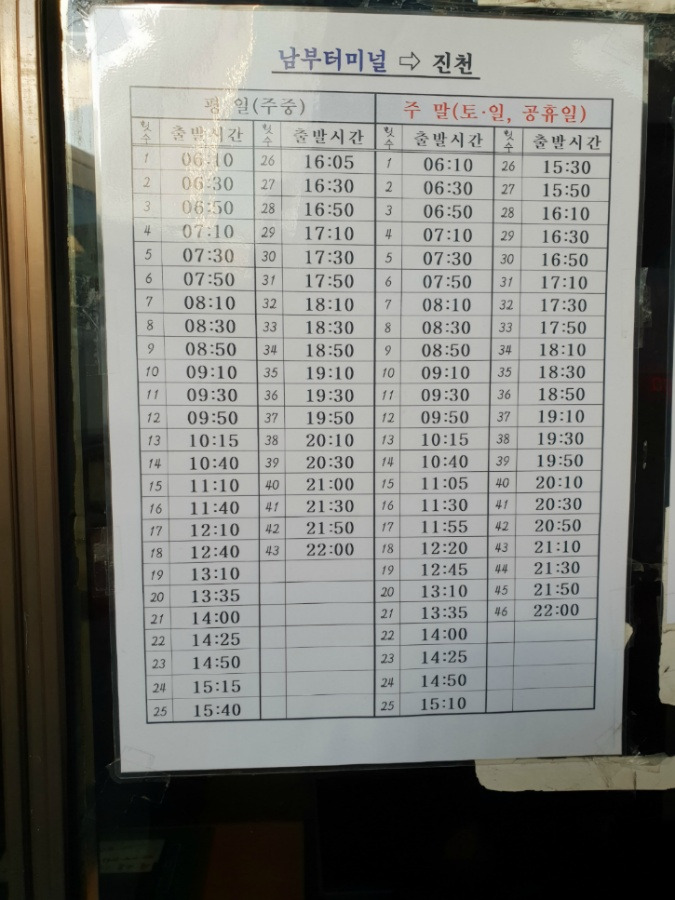 남부터미널 ⇨ 진천
평 일(주중) 주 말(토·일, 공휴일)
횟수 출발시간 횟수 출발시간 횟수 출발시간 횟수 출발시간
1 06:10 26 16:05 1 06:10 26 15:30
2 06:30 27 16:30 2 06:30 27 15:50
3 06:50 28 16:50 3 06:50 28 16:10
4 07:10 29 17:10 4 07:10 29 16:30
5 07:30 30 17:30 5 07:30 30 16:50
6 07:50 31 17:50 6 07:50 31 17:10
7 08:10 32 18:10 7 08:10 32 17:30
8 08:30 33 18:30 8 08:30 33 17:50
9 08:50 34 18:50 9 08:50 34 18:10
10 09:10 35 19:10 10 09:10 35 18:30
11 09:30 36 19:30 11 09:30 36 18:50
12 09:50 37 19:50 12 09:50 37 19:10
13 10:15 38 20:10 13 10:15 38 19:30
14 10:40 39 20:30 14 10:40 39 19:50
15 11:10 40 21:00 15 11:05 40 20:10
16 11:40 41 21:30 16 11:30 41 20:30
17 12:10 42 21:50 17 11:55 42 20:50
18 12:40 43 22:00 18 12:20 43 21:10
19 13:10 19 12:45 44 21:30
20 13:35 20 13:10 45 21:50
21 14:00 21 13:35 46 22:00
22 14:25 22 14:00
23 14:50 23 14:25
24 15:15 24 14:50
25 15:40 25 15:10